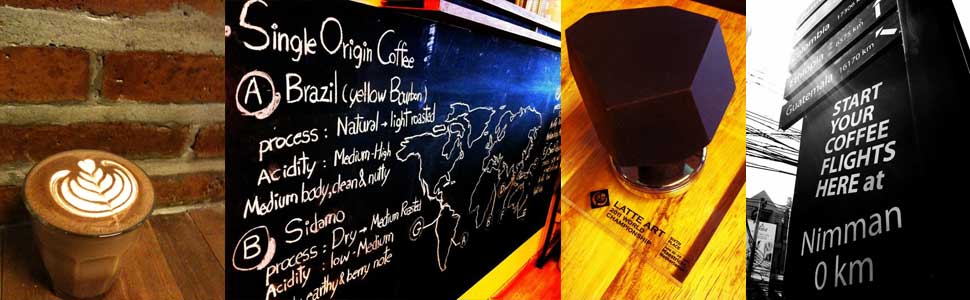 Single Origin Coffee
A Brazil (yellow Bourbon)
process : Natural → light roasted
Acidity : Medium-High
Medium body, clean & nutty
B Sidamo
process : Dry → Medium Roasted
Acidity : low-Medium
earthy & berry note
G
A
LATTE ART
2011 WORLD
CHAMPIONSHIP
Colombia 17306 km
Ethiopia 6575 km
Guatemala 16170 km
START
YOUR
COFFEE
FLIGHTS
HERE at
Nimman
0 km